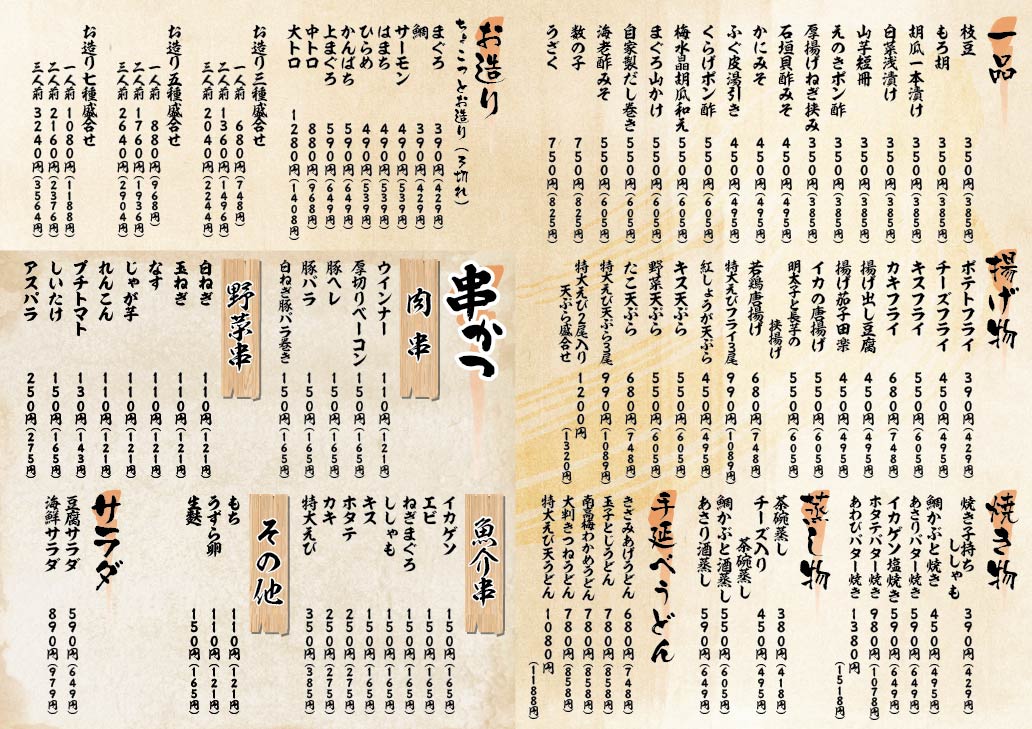 一品
枝豆 350円(385円)
もろ胡 350円(385円)
胡瓜一本漬け 350円(385円)
白菜浅漬け 350円(385円)
山芋短冊 350円(385円)
えのきポン酢 350円(385円)
厚揚げねぎ挟み 350円(385円)
石垣貝酢みそ 450円(495円)
かにみそ 450円(495円)
ふぐ皮湯引き 450円(495円)
くらげポン酢 550円(605円)
梅水晶胡瓜和え 550円(605円)
まぐろ山かけ 550円(605円)
自家製だし巻き 550円(605円)
海老酢みそ 550円(605円)
数の子 750円(825円)
うざく 750円(825円)
お造り
ちょこっとお造り(3切れ)
まぐろ 390円(429円)
鯛 390円(429円)
サーモン 490円(539円)
はまち 490円(539円)
ひらめ 490円(539円)
かんぱち 590円(649円)
上まぐろ 590円(649円)
中トロ 880円(968円)
大トロ 1280円(1408円)
お造り三種盛合せ
一人前 680円(748円)
二人前 1360円(1496円)
三人前 2040円(2244円)
お造り五種盛合せ
一人前 880円(968円)
二人前 1760円(1936円)
三人前 2640円(2904円)
お造り七種盛合せ
一人前 1080円(1188円)
二人前 2160円(2376円)
三人前 3240円(3564円)
揚げ物
ポテトフライ 390円(429円)
チーズフライ 450円(495円)
キスフライ 550円(605円)
カキフライ 680円(748円)
揚げ出し豆腐 450円(495円)
揚げ茄子田楽 450円(495円)
イカの唐揚げ 550円(605円)
明太子と長芋の
挟揚げ 550円(605円)
若鶏唐揚げ 680円(748円)
特大えびフライ3尾 990円(1089円)
紅しょうが天ぷら 450円(495円)
キス天ぷら 550円(605円)
野菜天ぷら 550円(605円)
たこ天ぷら 680円(748円)
特大えび天ぷら3尾 990円(1089円)
特大えび2尾入り
天ぷら盛合せ 1200円(1320円)
串かつ
肉串
ウインナー 110円(121円)
厚切りベーコン 150円(165円)
豚ヘレ 150円(165円)
豚バラ 150円(165円)
白ねぎ豚バラ巻き 150円(165円)
野菜串
白ねぎ 110円(121円)
玉ねぎ 110円(121円)
なす 110円(121円)
じゃが芋 110円(121円)
れんこん 110円(121円)
プチトマト 130円(143円)
しいたけ 150円(165円)
アスパラ 250円(275円)
焼き物
焼き子持ち
ししゃも 390円(429円)
鯛かぶと焼き 450円(495円)
あさりバター焼き 590円(649円)
イカゲソ塩焼き 590円(649円)
ホタテバター焼き 980円(1078円)
あわびバター焼き 1380円(1518円)
蒸し物
茶碗蒸し 380円(418円)
チーズ入り
茶碗蒸し 450円(495円)
鯛かぶと酒蒸し 550円(605円)
あさり酒蒸し 590円(649円)
手延べうどん
きざみあげうどん 680円(748円)
玉子とじうどん 780円(858円)
南高梅わかめうどん 780円(858円)
大判きつねうどん 780円(858円)
特大えび天うどん 1080円(1188円)
魚介串
イカゲソ 150円(165円)
エビ 150円(165円)
ねぎまぐろ 150円(165円)
ししゃも 150円(165円)
キス 150円(165円)
ホタテ 250円(275円)
カキ 250円(275円)
特大えび 350円(385円)
その他
もち 110円(121円)
うずら卵 110円(121円)
生麩 150円(165円)
サラダ
豆腐サラダ 590円(649円)
海鮮サラダ 890円(979円)